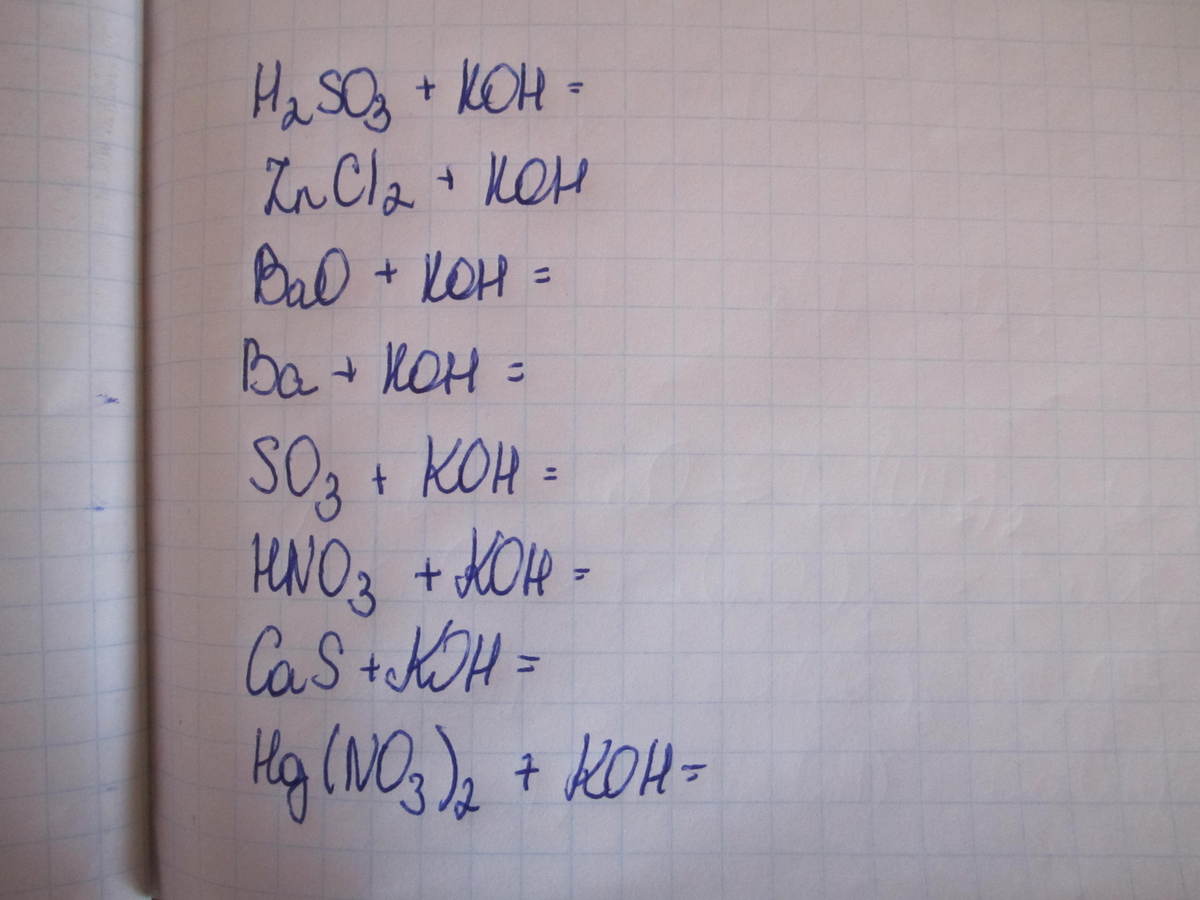 H₂SO₃ + KOH =
ZnCl₂ + KOH
BaO + KOH =
Ba + KOH =
SO₃ + KOH =
HNO₃ + KOH =
CaS + KOH =
Hg(NO₃)₂ + KOH =